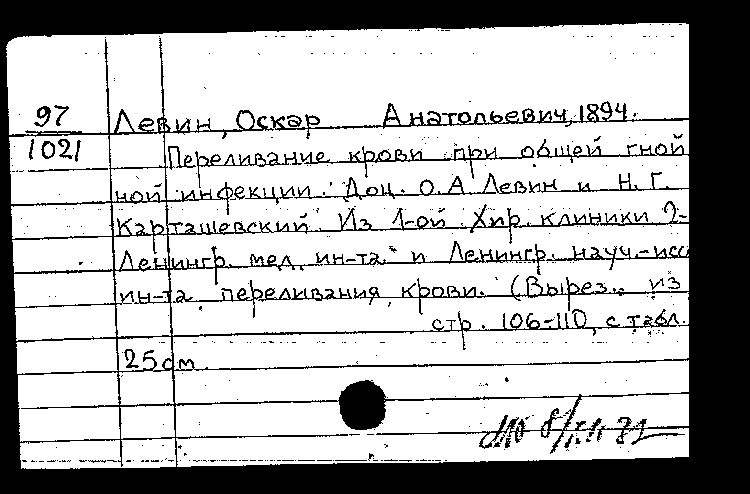 97
1021
Левин, Оскар Анатольевич, 1894.
Переливание крови при общей гной
ной инфекции. Доц. О.А Левин и Н.Г.
Карташевский. Из 1-ой Хир. клиники 2-
Ленингр. мед. ин-та. и Ленингр. науч.-исс
ин-та переливания крови. (Вырез. из
стр. 106-110, с табл.
25 cm